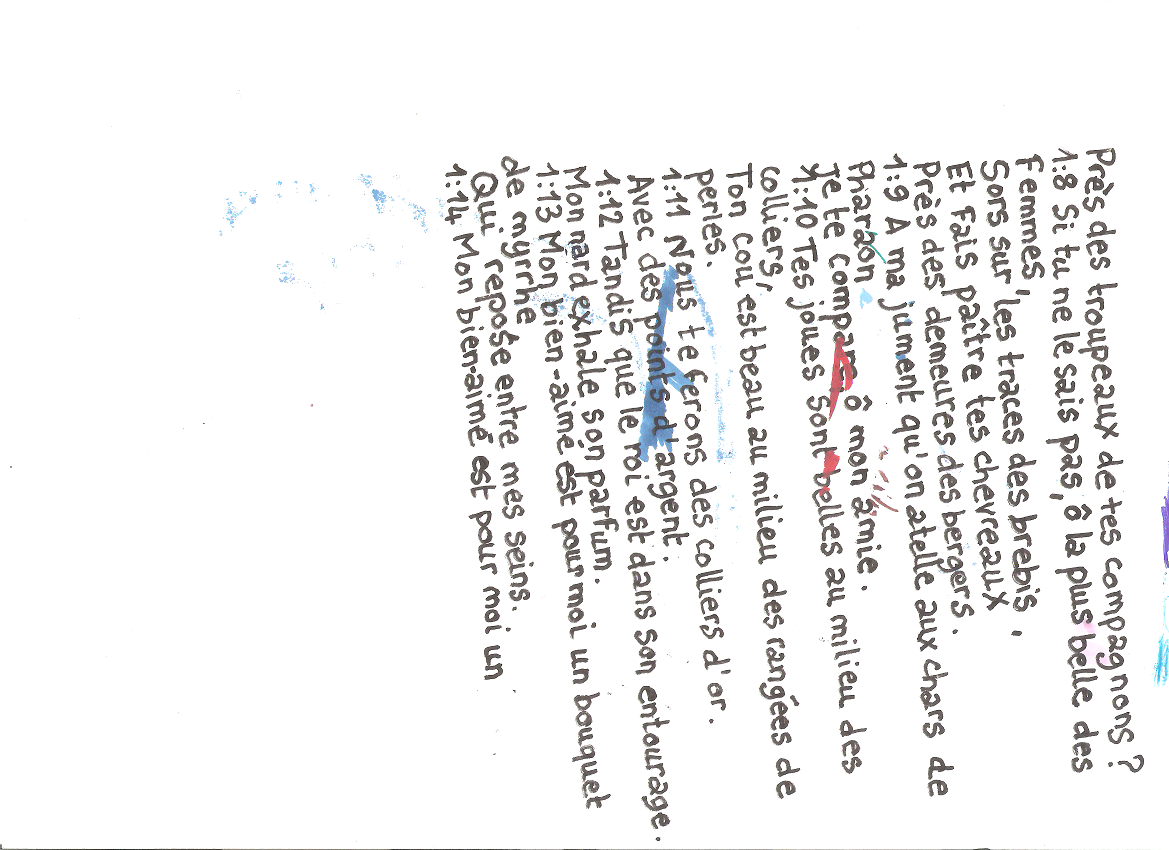 Près des troupeaux de tes compagnons ?
1:8 Si tu ne le sais pas, ô la plus belle des
Femmes,
Sors sur les traces des brebis,
Et fais paître tes chevreaux
Près des demeures des bergers.
1:9 A ma jument qu'on atelle aux chars de
Pharaon
Je te compare, ô mon amie.
1:10 Tes joues sont belles au milieu des
colliers,
Ton cou est beau au milieu des rangées de
perles.
1:11 Nous te ferons des colliers d'or.
Avec des points d'argent.
1:12 Tandis que le roi est dans son entourage.
Mon nard exhale son parfum.
1:13 Mon bien-aimé est pour moi un bouquet
de myrrhe
Qui repose entre mes seins.
1:14 Mon bien-aimé est pour moi un